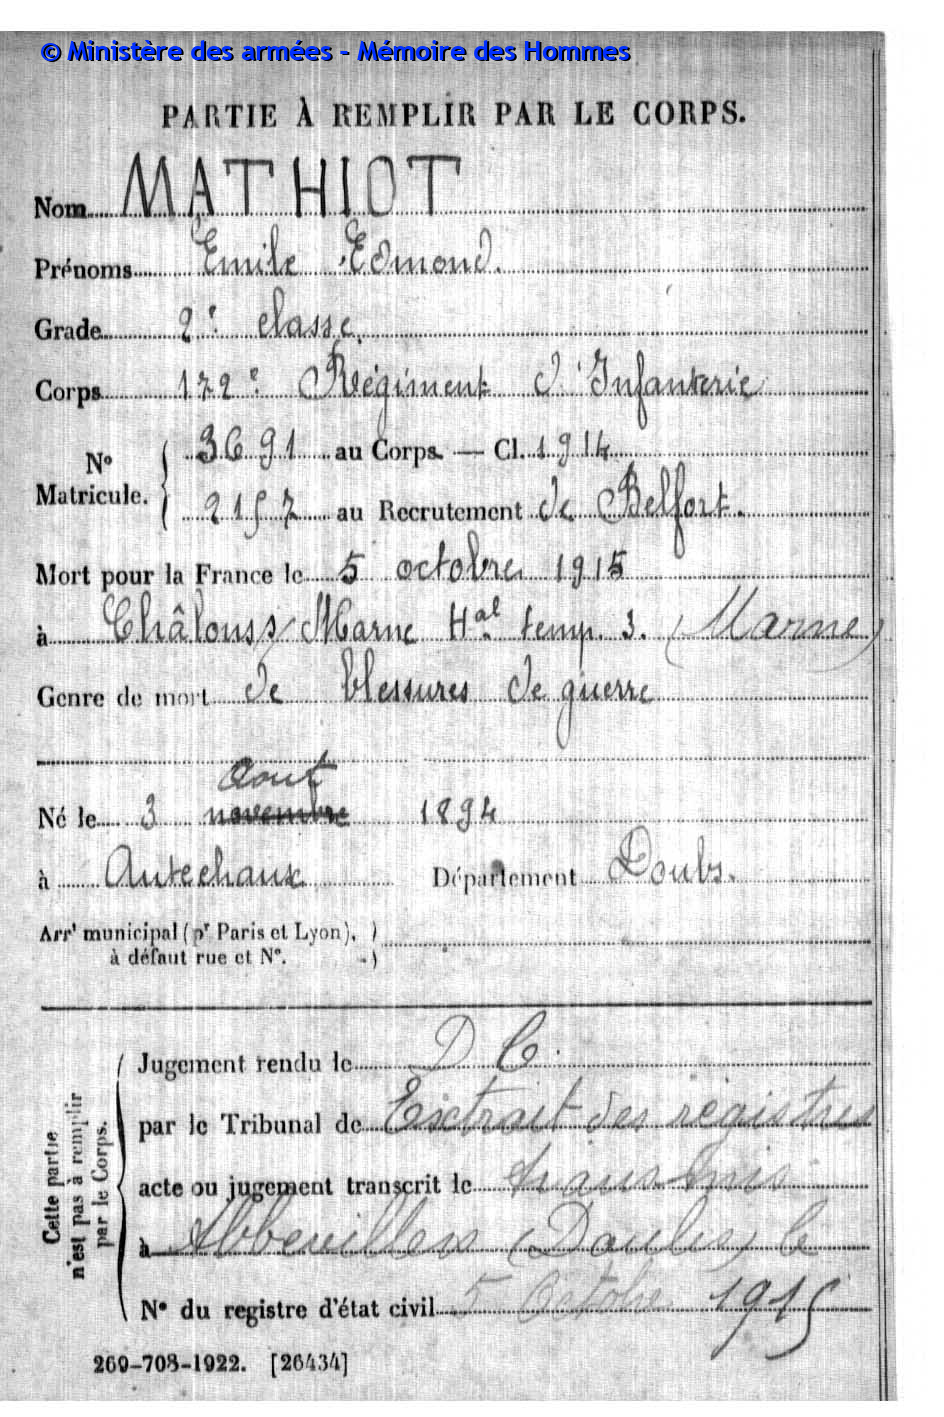 © Ministère des armées - Mémoire des Hommes
PARTIE À REMPLIR PAR LE CORPS.
Nom MATHIOT
Prénoms Emile Edmond.
Grade 2e classe.
Corps 172e Régiment d'Infanterie
N° Matricule. 3691 au Corps. — Cl. 1914
2157 au Recrutement de Belfort.
Mort pour la France le 5 octobre 1915
à Châlons s/ Marne Hal temp. 3. (Marne)
Genre de mort de blessures de guerre
aout
Né le 3 novembre 1894
à Autechaux Département Doubs.
Arrt municipal (pr Paris et Lyon),
à défaut rue et N°.
Cette partie n'est pas à remplir par le Corps.
Jugement rendu le D C.
par le Tribunal de Extrait des registres
acte ou jugement transcrit le transmis
à Abbevillers (Doubs) le
N° du registre d'état civil 5 Octobre 1915
269-708-1922. [26434]